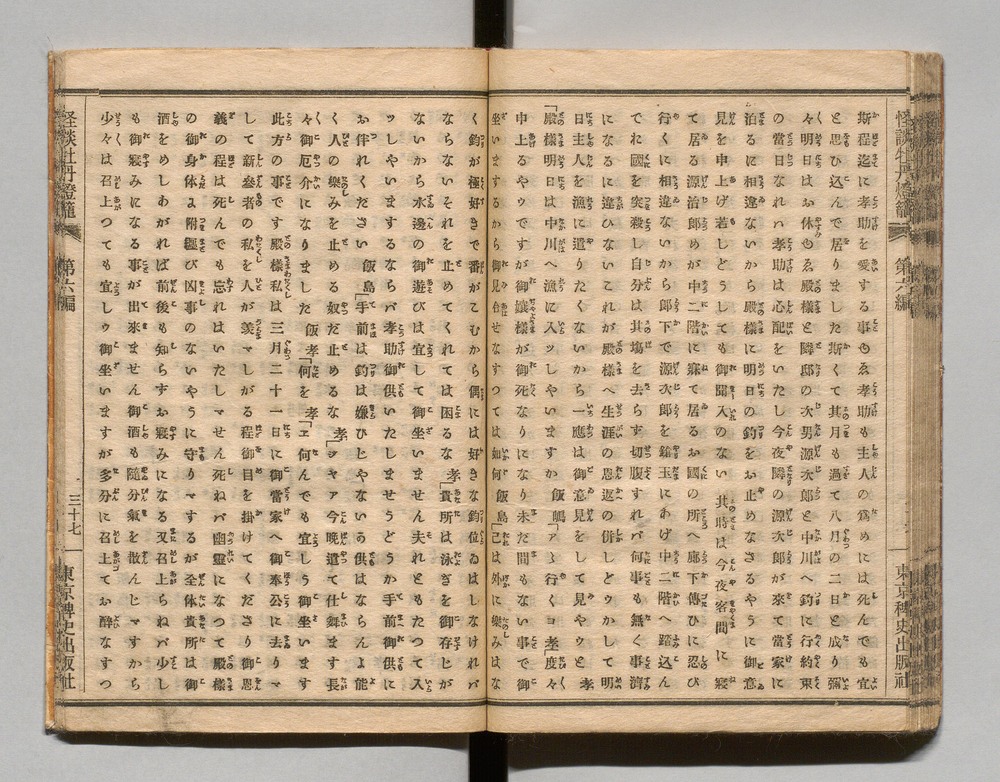 怪談牡丹燈籠 第六編 東京稗史出版社
斯程迄に孝助を愛する事ゆゑ孝助も主人の爲めには死んでも宜
と思ひ込んで居りました斯くて其月も過て八月の二日と成り彌
々明日はお休ゆゑ殿様と隣邸の次男源次郎と中川へ釣に行約束
の當日なれバ孝助は心配をいたし今夜隣の源次郎が來て當家に
泊るに相違ないから殿様に明日の釣をお止めなさるやうに御意
見を申上げ若しどうしても御聞入のない其時は今夜客間に寢
て居る源治郎めが中二階に寐て居るお國の所へ廊下傳ひに忍び
行くに相違ないから郎下で源次郎を鎗玉にあげ中二階へ踏込ん
でれ國を突殺し自分は其塲を去らず切腹すれバ何事も無く事濟
になるに違ひないこれが殿様へ生涯の恩返の併しどうかして明
日主人を漁に遣りたくないから一應は御意見をして見やうと孝
「殿様明日は中川へ漁に入ッしやいますか飯嶋「アヽ行くヨ孝「度々
申上るやうですが御孃様が御死なりになり未だ間もない事で御
坐いまするから御見合せなすつては如何飯島「己は外に樂みはな
く釣が極好きで番がこむから偶には好きな釣位ゐはしなけれバ
ならないそれを止めてくれては困るな孝「貴所は泳ぎを御存じが
ないから水邊の御遊びは宜しく御坐いません夫れともたつて入
ッしやいまするならバ孝助御供いたしませうどうか手前御供に
お伴れください飯島「手前は釣は嫌ひじやないか供はならんよ能
く人の樂みを止める奴だ止めるな孝「ヂヤア今晩遣て仕舞ます長
々御厄介になりました飯「何を孝「ヱ何んでも宜しう御坐います
此方の事です殿様私は三月二十一日に御當家へ御奉公に去りま
して新參者の私を人が羨ましがる程御目を掛けてくださり御恩
義の程は死んでも忘れはいたしマせん死ねバ幽靈になつて殿様
の御身体に附纒び凶事のないやうに守りマするが全体貴所は御
酒をめしあがれば前後も知らずお寢みになる又召上らねバ少し
も御寢みになる事が出來ません御酒も隨分氣を散んじますから
少々は召上つても宜しう御坐いますが多分に召上てお醉なすつ
怪談牡丹燈籠 第六編 三十七 東京稗史出版社